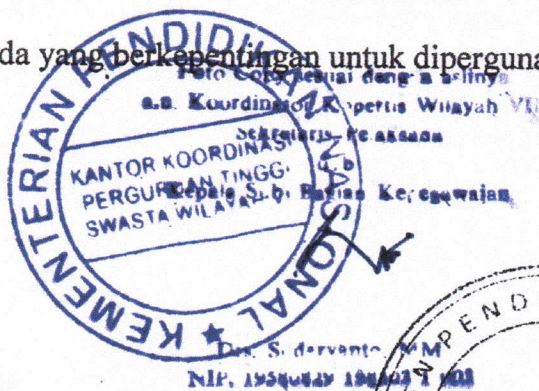 da yang berkepentingan untuk diperguna
Foto Copy sesuai dengan aslinya
a.n. Koordinator Kopertis Wilayah VI
Sekretaris Pelaksana
u.b.
Kepala Sub Bagian Kepegawaian
KEMENTERIAN PENDIDIKAN NASIONAL
KANTOR KOORDINASI
PERGURUAN TINGGI
SWASTA WILAYAH
Drs. Sudaryanto MM
NIP.
N PEND